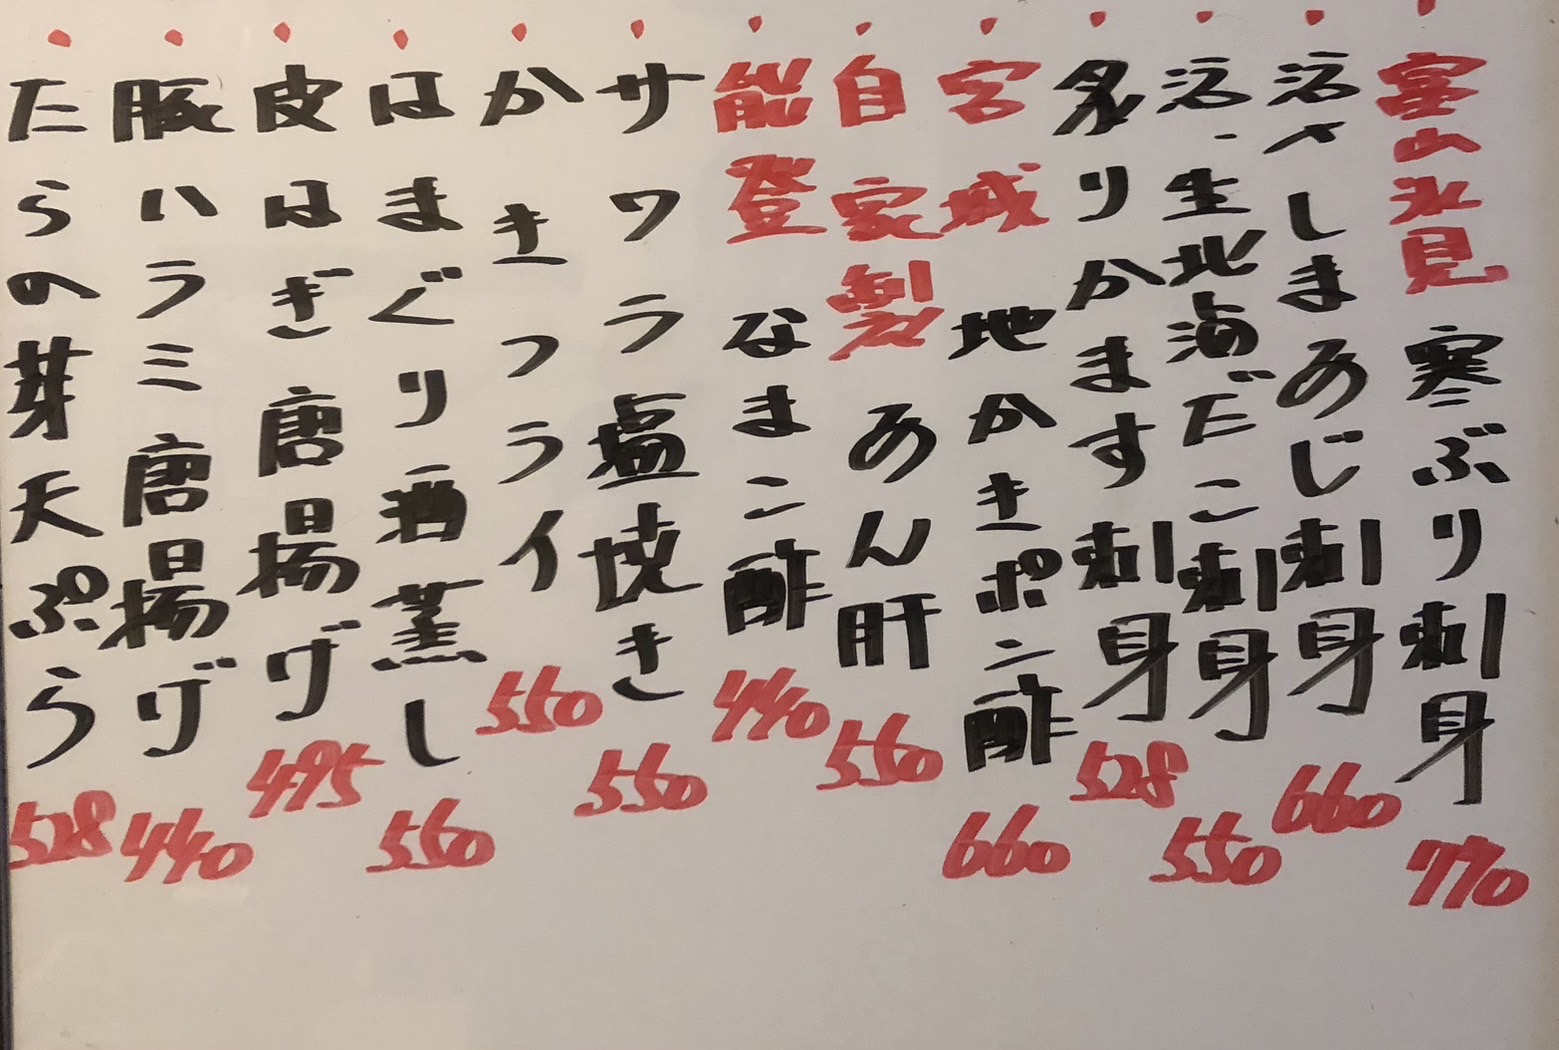 富山氷見 寒ぶり刺身 770
活〆しまあじ刺身 660
活、生北海だこ刺身 550
炙りかます刺身 528
宮城 地かきポン酢 660
自家製 あん肝 550
能登 なまこ酢 440
サワラ塩焼き 550
かきフライ 550
はまぐり酒蒸し 550
皮はぎ唐揚げ 495
豚ハラミ唐揚げ 440
たらの芽天ぷら 528